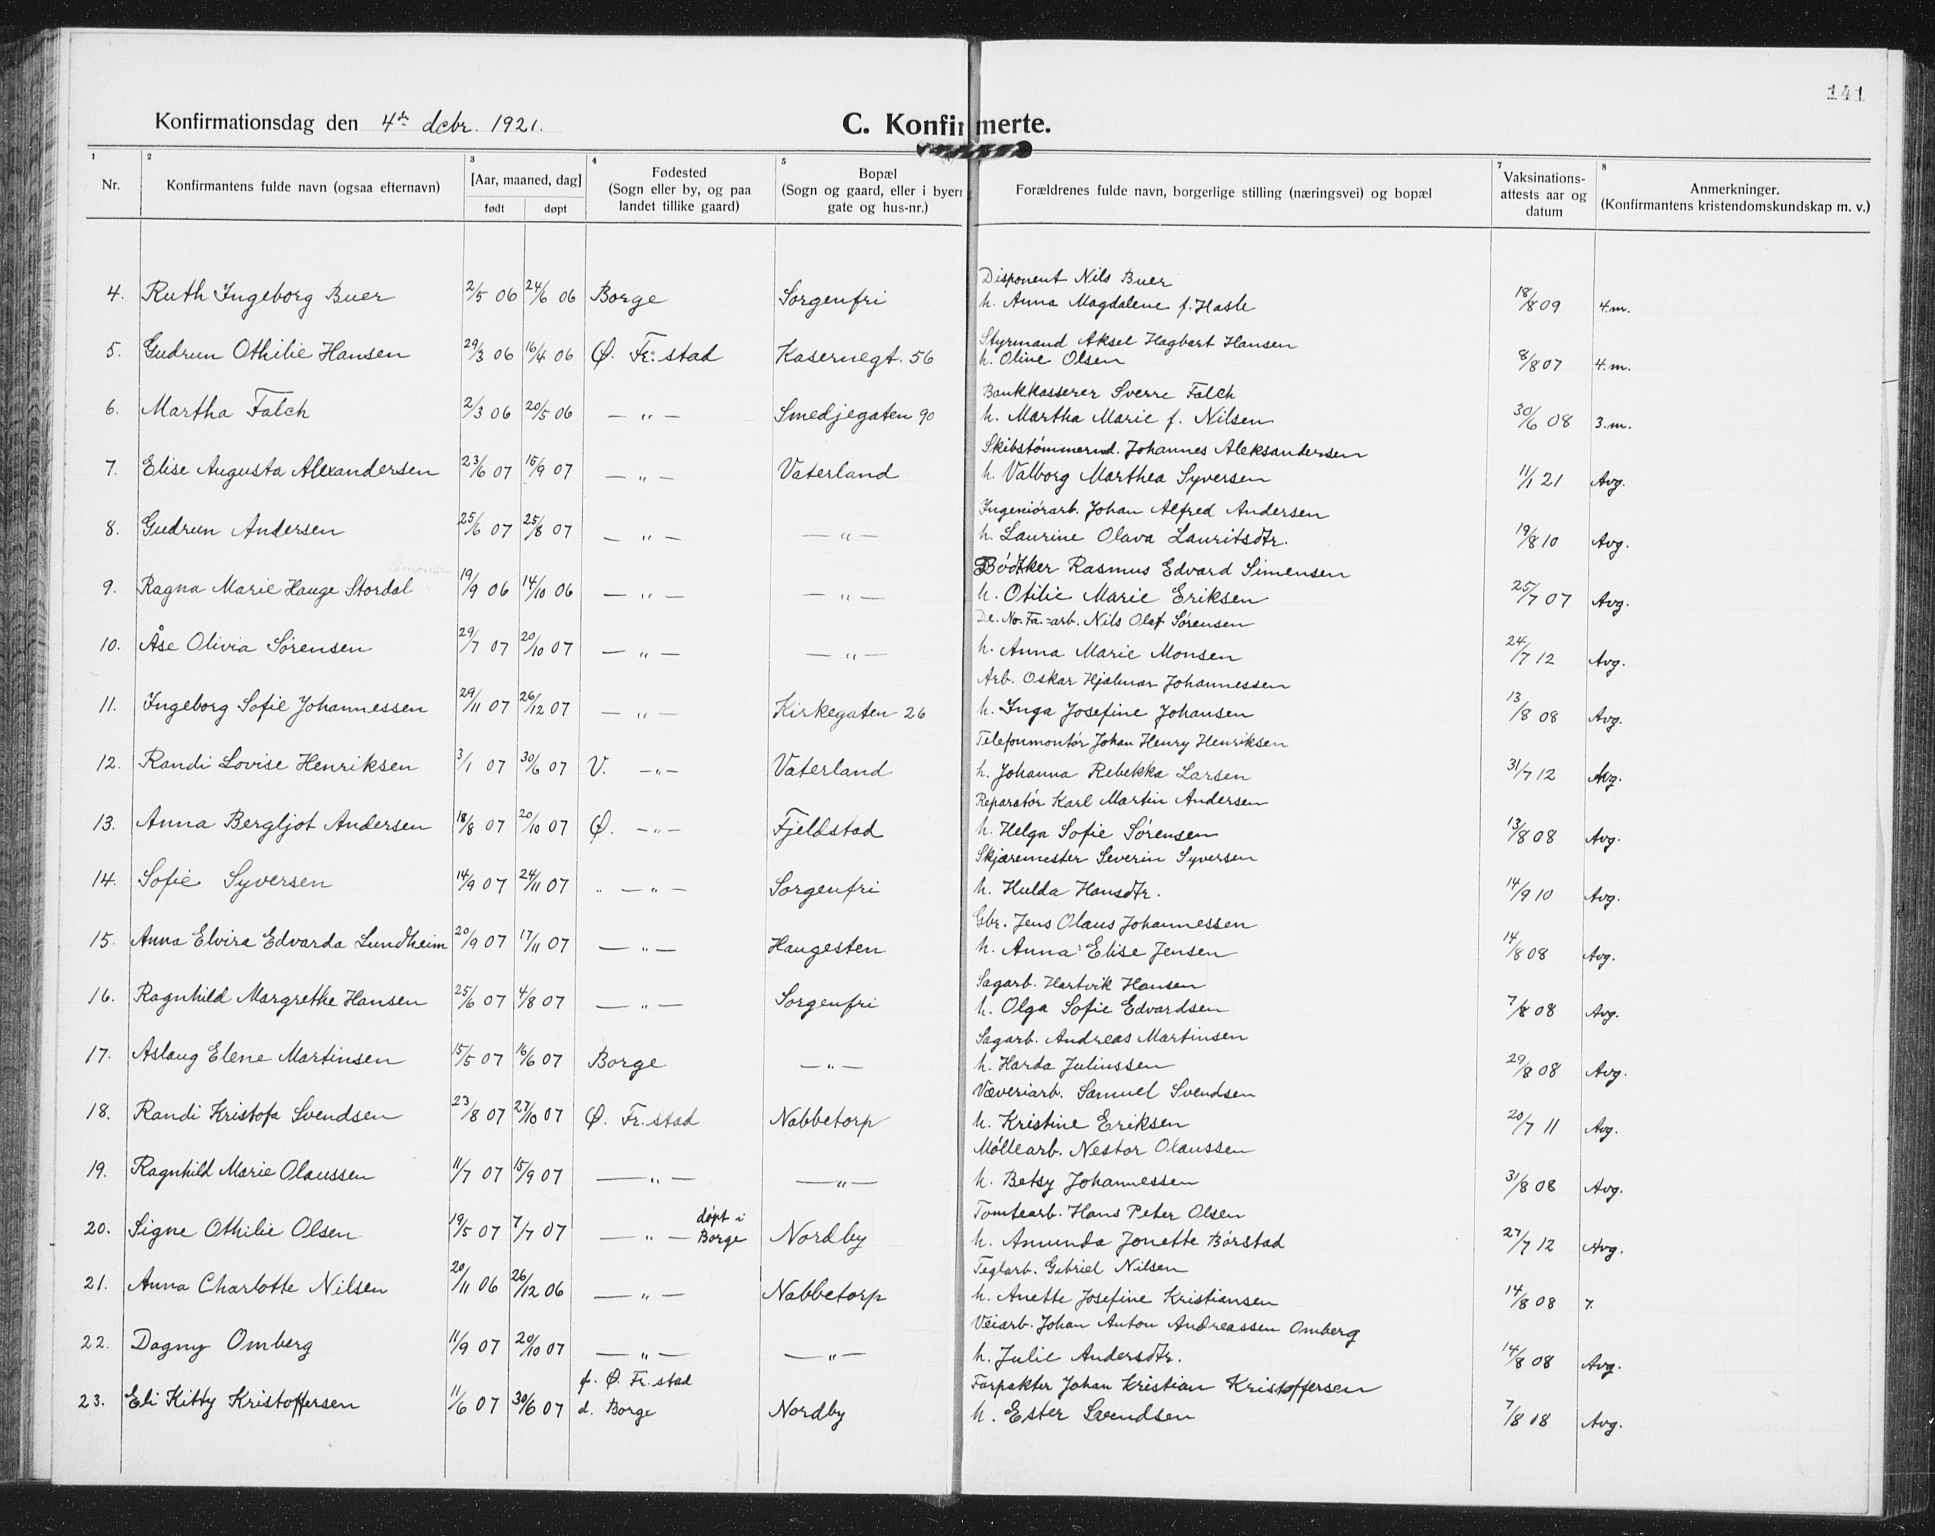 141
Konfirmationsdag den 4de decbr. 1921.
C. Konfirmerte.
1 2 3 4 5 7 8
Nr.
Konfirmantens fulde navn (ogsaa efternavn)
[Aar, maaned, dag]
født døpt
Fødested
(Sogn eller by, og paa
landet tillike gaard)
Bopæl
(Sogn og gaard, eller i byern
gate og hus-nr.)
Forældrenes fulde navn, borgerlige stilling (næringsvei) og bopæl
Vaksinations-
attests aar og
datum
Anmerkninger.
(Konfirmantens kristendomskundskap m. v.)
Disponent Nils Buer
4. Ruth Ingeborg Buer 2/5 06 24/6 06 Borge Sorgenfri h. Anna Magdalene f. Hasle 18/8 09 4.m.
Styrmand Aksel Hagbart Hansen
5. Gudrun Othilie Hansen 29/3 06 16/4 06 Ø. Fr.stad Kasernegt. 56 h. Oline Olsen 8/8 07 4.m.
Bankkasserer Sverre Falch
6. Martha Falch 2/3 06 20/5 06 — " — Smedjegaten 90 h. Martha Marie f. Nilsen 30/6 08 3.m.
Skibstømmermd. Johannes Aleksandersen
7. Elise Augusta Alexandersen 23/6 07 15/9 07 — " — Vaterland h. Valborg Marthea Syversen 11/1 21 Avg.
Ingeniørarb. Johan Alfred Andersen
8. Gudrun Andersen 25/6 07 25/8 07 — " — — " — h. Laurine Olava Lauritsdtr. 19/8 10 Avg.
Simonsen
Bødker Rasmus Edvard Simensen
9. Ragna Marie Hauge Stordal 19/9 06 14/10 06 — " — — " — h. Otilie Marie Eriksen 25/7 07 Avg.
De. No. Fa.-arb. Nils Olaf Sørensen
10. Åse Olivia Sørensen 29/7 07 20/10 07 — " — — " — h. Anna Marie Monsen 24/7 12 Avg.
Arb. Oskar Hjalmar Johannessen
11. Ingeborg Sofie Johannessen 29/11 07 26/12 07 — " — Kirkegaten 26 h. Inga Josefine Johansen 13/8 08 Avg.
Telefonmontør Johan Henry Henriksen
12. Randi Lovise Henriksen 3/1 07 30/6 07 V. — " — Vaterland h. Johanna Rebekka Larsen 31/7 12 Avg.
Reparatør Karl Martin Andersen
13. Anna Bergljot Andersen 18/8 07 20/10 07 Ø. — " — Fjeldstad h. Helga Sofie Sørensen 13/8 08 Avg.
Skjæremester Severin Syversen
14. Sofie Syversen 14/9 07 24/11 07 " — " — Sorgenfri h. Hulda Hansdtr. 14/9 10 Avg.
Gbr. Jens Olaus Johannessen
15. Anna Elvira Edvarda Lundheim 20/9 07 17/11 07 — " — Haugesten h. Anna Elise Jensen 14/8 08 Avg.
Sagarb. Hartvik Hansen
16. Ragnhild Margrethe Hansen 25/6 07 4/8 07 — " — Sorgenfri h. Olga Sofie Edvardsen 7/8 08 Avg.
Sagarb. Andreas Martinsen
17. Aslaug Elene Martinsen 15/5 07 16/6 07 Borge — " — h. Harda Juliussen 29/8 08 Avg.
Væveriarb. Samuel Svendsen
18. Randi Kristofa Svendsen 23/8 07 27/10 07 Ø. Fr.stad Nabbetorp h. Kristine Eriksen 20/7 11 Avg.
Møllearb. Nestor Olaussen
19. Ragnhild Marie Olaussen 11/7 07 15/9 07 — " — — " — h. Betsy Johannessen 31/8 08 Avg.
Tomtearb. Hans Peter Olsen
døpt i
20. Signe Othilie Olsen 19/5 07 7/7 07 — " — Borge Nordby h. Amunda Jonette Børstad 27/7 12 Avg.
Teglarb. Gabriel Nilsen
21. Anna Charlotte Nilsen 20/11 06 26/12 06 — " — Nabbetorp h. Anette Josefine Kristiansen 14/8 08 7.
Veiarb. Johan Anton Andreassen Omberg
22. Dagny Omberg 11/9 07 20/10 07 — " — — " — h. Julie Andersdtr. 14/8 08 Avg.
f. Ø. Fr.stad Forpakter Johan Kristian Kristoffersen
23. Eli Kitty Kristoffersen 11/6 07 30/6 07 d. Borge Nordby h. Ester Svendsen 7/8 18 Avg.